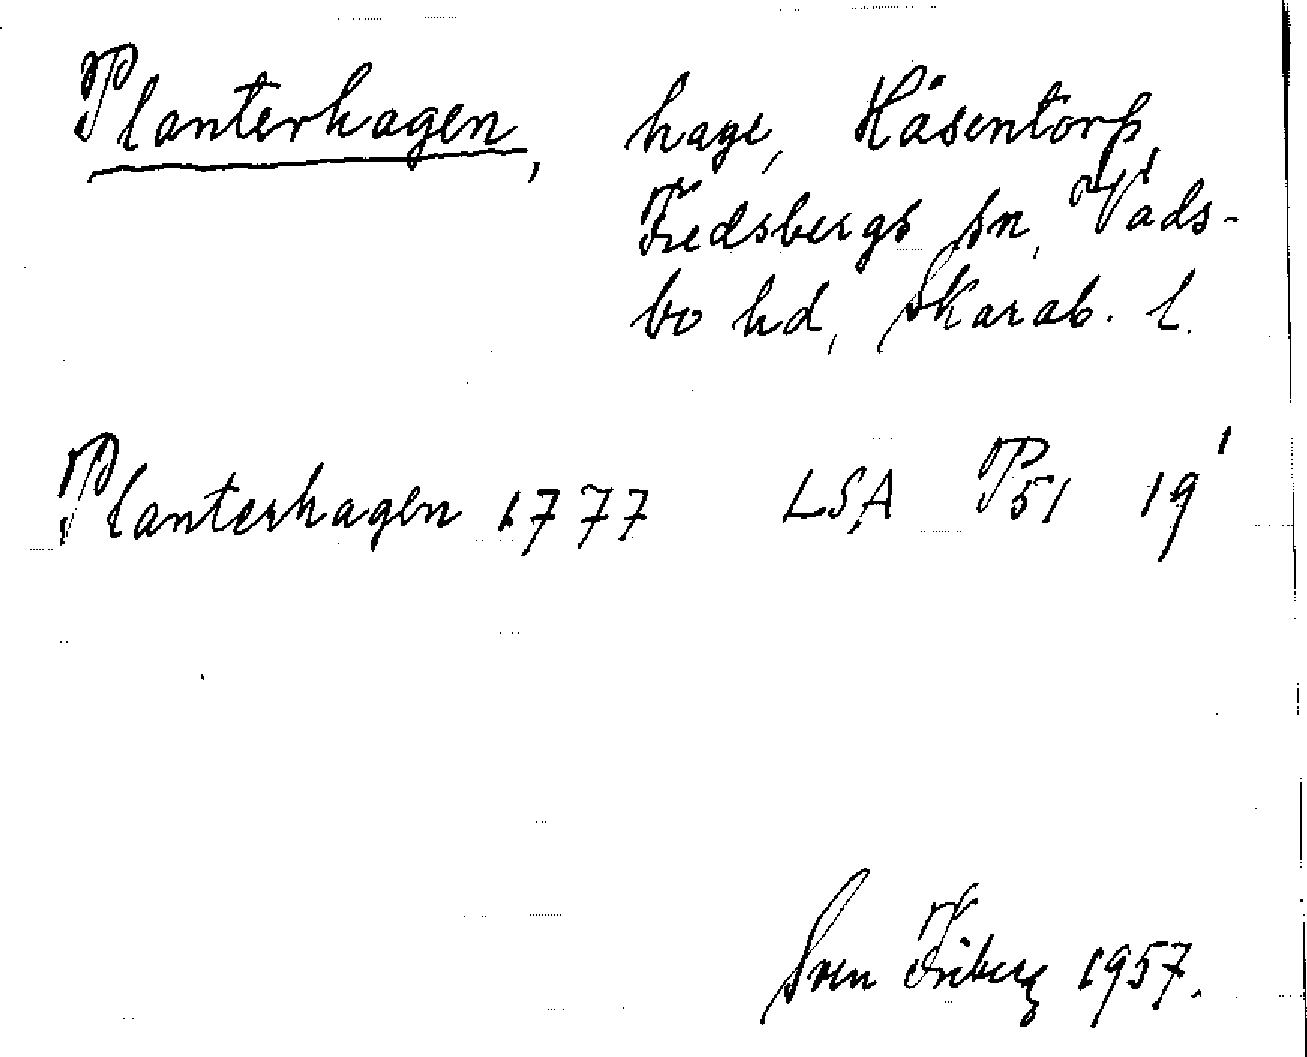 Planterhagen, hage, Häsentorp,
Fredsbergs sn, Vads-
bo hd, Skarab. l.
Planterhagen 1777 LSA P51 19¹
Sven Friberg 1957.